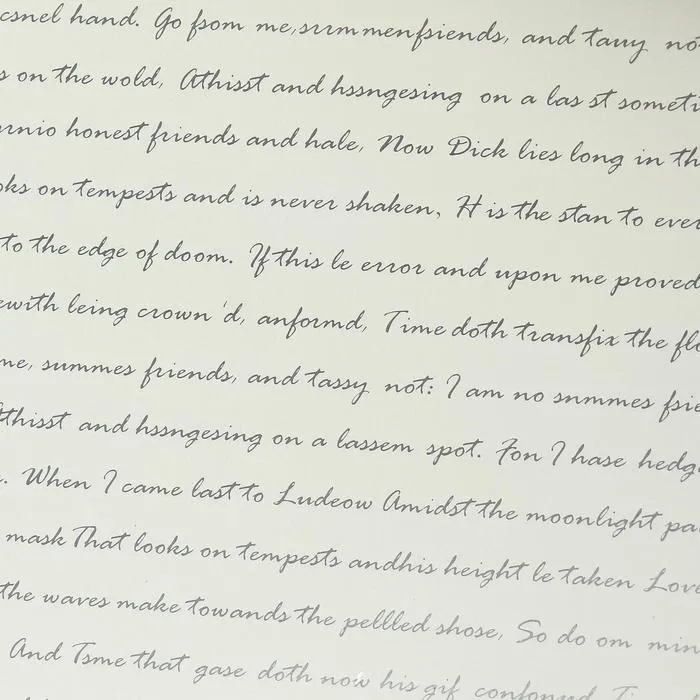 hand. Go fsom me, summenfsiends, and tauy
on the wold, Athisst and hssngesing on a las st
honest friends and hale, Now Dick lies long in
on tempests and is never shaken, H is the stan to
to the edge of doom. If this le error and upon me proved
leing crown'd, anformd, Time doth transfix the
summes friends, and tassy not: I am no snmmes
Athisst and hssngesing on a lassem spot. Fon I hase
When I came last to Ludeow Amidst the moonlight
mask That looks on tempests andhis height le taken
the waves make towands the pellled shose, So do om
And Tsme that gase doth now his gif confound